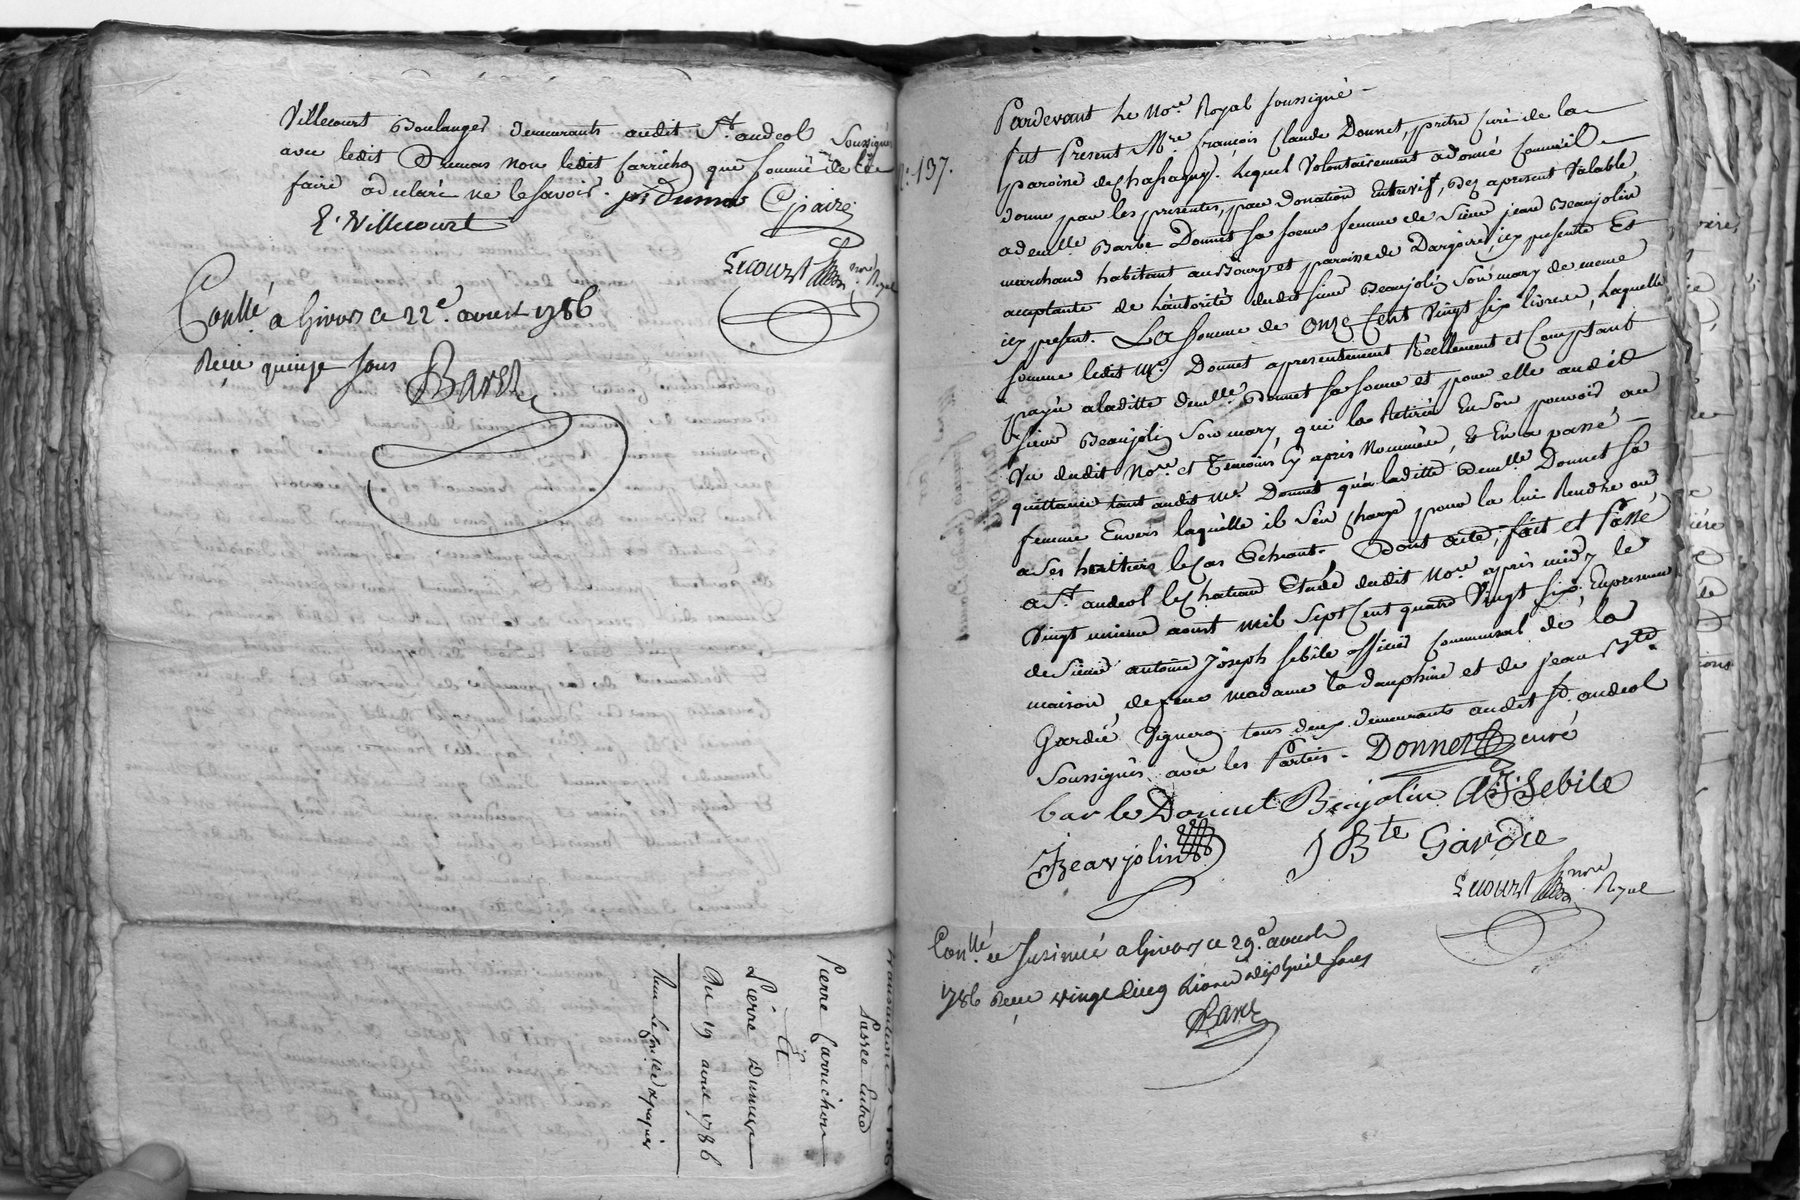 Villecourt Boulanger demeurants audit St. andeol Soussignés
avec ledit Dumas non ledit Carrichon que sommé de le
faire a declaré ne le savoir. pr Dumas C paire
E. Villecourt
Lecourt nore Royal
Conllé a Givors ce 22e. avril 1786
Reçu quinze sous
Baret
Transaction
Passée Entre
Pierre Carrichon
Et
Pierre Dumas
Du 19 avril 1786
No. 137.
Pardevant Le Nore Royal soussigné
fut Present Mre. françois Claude Donnet, prêtre curé de la
paroisse de Chassagny. Lequel Volontairement a donné comme il
donne par les presentes, par donation Entrevifs, dez apresent Valable,
a demlle Barbe Donnet sa soeur femme de Sieur jean Beaujolin
marchand habitant au Bourg et paroisse Dargoire, icy presente Et
acceptante de L'autorité dudit sieur Beaujolin Son mary de meme
icy present. La Somme de Onze Cent Vingt six livres, Laquelle
somme ledit Mre. Donnet a presentement Réellement et Comptant
payée a laditte demlle Donnet sa soeur et pour elle audit
sieur Beaujolin Son mary, qui la Retirée En son pouvoir au
Vu dudit Nore. et Temoins Cy après Nommés, & En a passé
quittance tant audit Mre. Donnet qu'a laditte demlle Donnet sa
femme Envers laquelle il s'en charge pour la lui Rendre ou
a ses heritiers le Cas Echeant. Dont acte; fait et Passé
a St. andeol le Chateau Etude dudit Nore après midy le
Vingt unieme avril Mil Sept Cent quatre Vingt six, En presence
de Sieur antoine Joseph Sebile officier Commensal de la
maison de feue madame la dauphine et de jean Bte.
Gardie Vigneron tous deux demeurants audit St. andeol
Soussignés avec les Parties. Donnet curé
barbe Donnet Beujolin A J Sebile
J Beaujolin J Bte Gardie
Lecourt nore Royal
Conllé et Insinué a Givors ce 29e. avril
1786 Reçu vingt Cinq Livres dixhuit sous
Baret